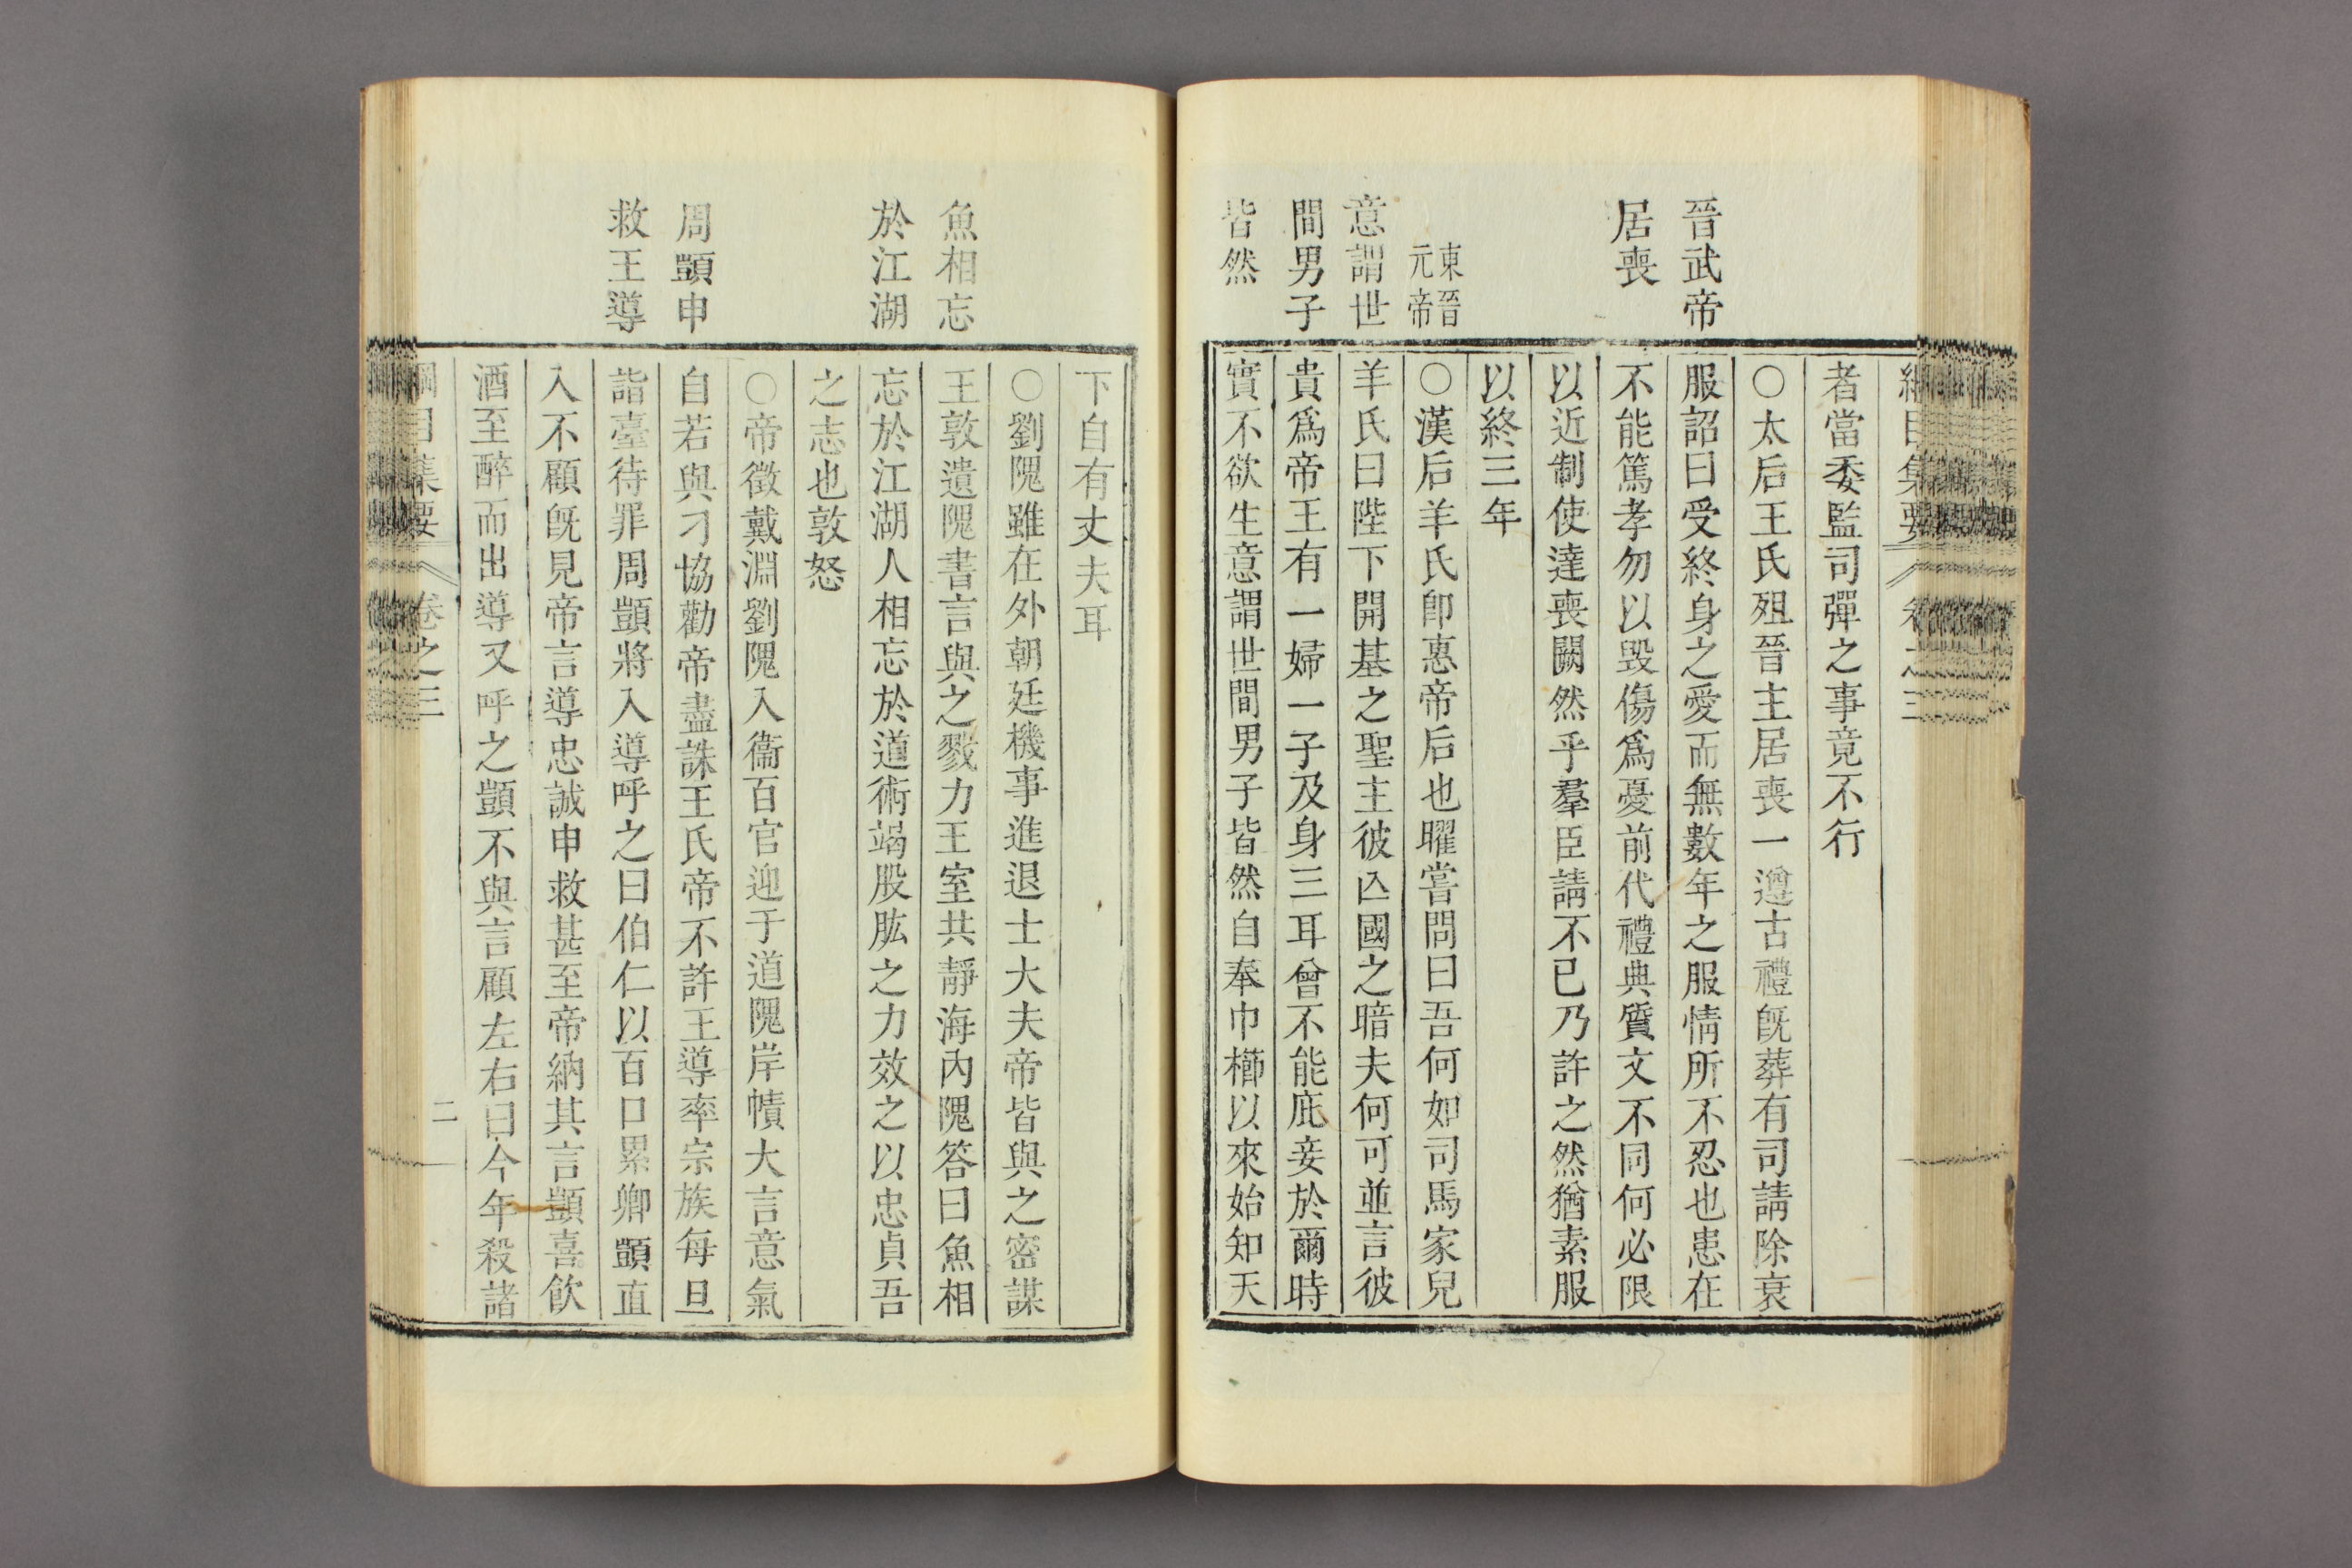 晉武帝
居喪
東晉
元帝
意謂世
間男子
皆然
者當委監司彈之事竟不行
〇太后王氏殂晉主居喪一遵古禮旣葬有司請除衰
服詔曰受終身之愛而無數年之服情所不忍也患在
不能篤孝勿以毀傷爲憂前代禮典質文不同何必限
以近制使達喪闕然乎羣臣請不已乃許之然猶素服
以終三年
〇漢后羊氏卽惠帝后也曜嘗問曰吾何如司馬家兒
羊氏曰陛下開基之聖主彼亾國之暗夫何可並言彼
貴爲帝王有一婦一子及身三耳曾不能庇妾於爾時
實不欲生意謂世間男子皆然自奉巾櫛以來始知天
魚相忘
於江湖
周顗申
救王導
下自有丈夫耳
〇劉隗雖在外朝廷機事進退士大夫帝皆與之密謀
王敦遺隗書言與之戮力王室共靜海內隗答曰魚相
忘於江湖人相忘於道術竭股肱之力效之以忠貞吾
之志也敦怒
〇帝徵戴淵劉隗入衞百官迎于道隗岸幘大言意氣
自若與刁協勸帝盡誅王氏帝不許王導率宗族每旦
詣臺待罪周顗將入導呼之曰伯仁以百口累卿顗直
入不顧旣見帝言導忠誠申救甚至帝納其言顗喜飮
酒至醉而出導又呼之顗不與言顧左右曰今年殺諸
綱目集要 卷之三
二